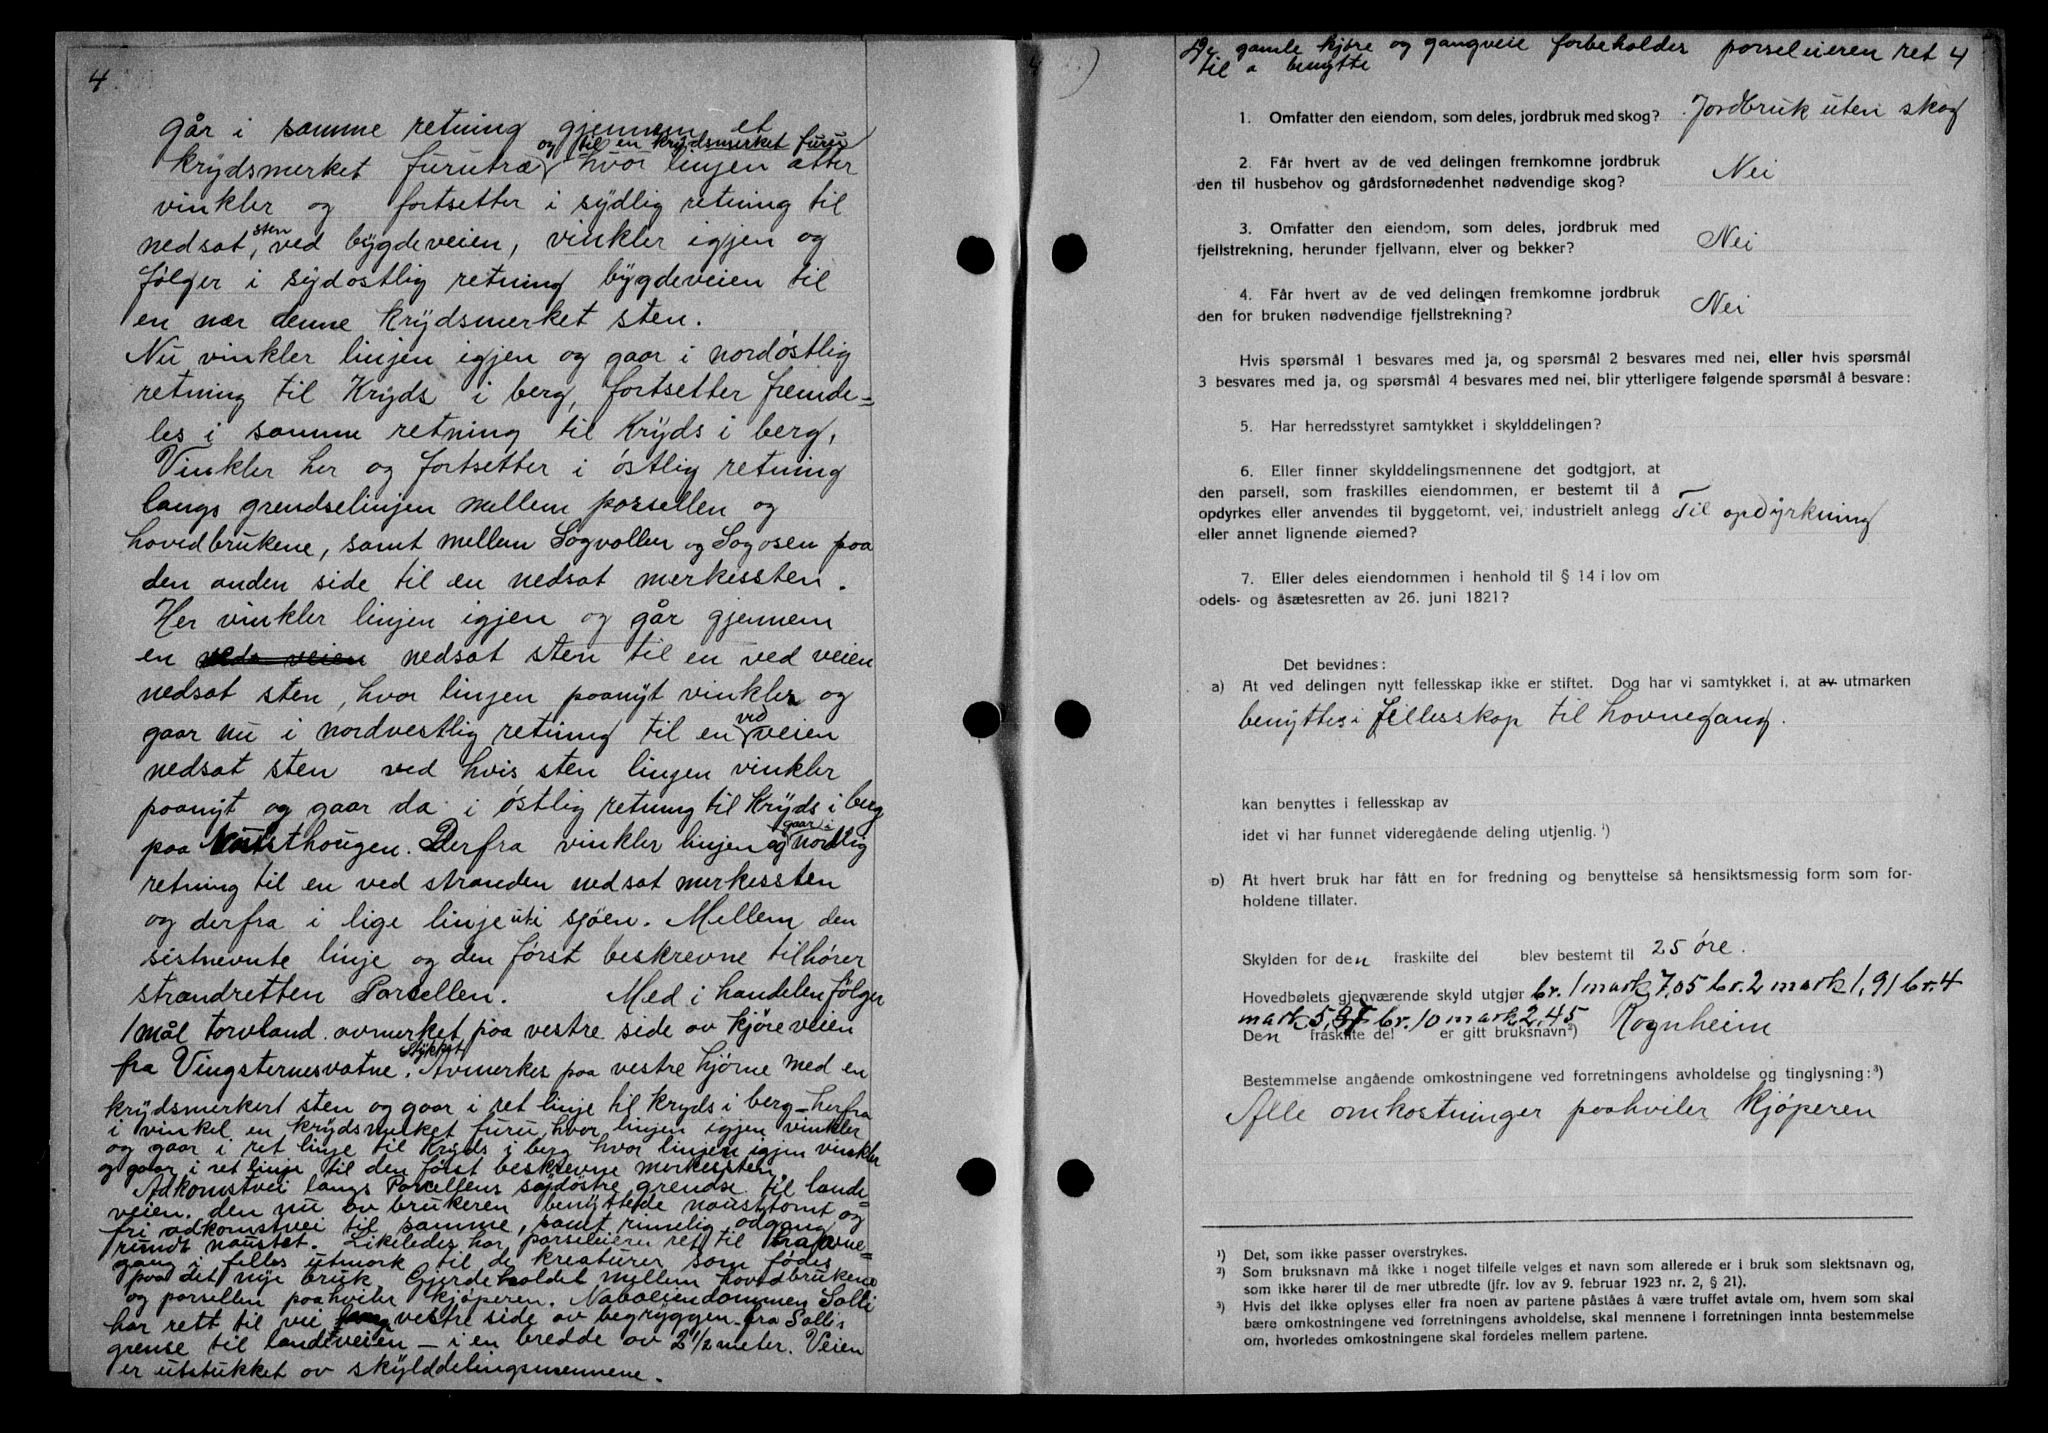 4
går i samme retning gjennem et
og til en krydsmerket furu
krydsmerket furutræ hvor linjen atter
vinkler og fortsetter i sydlig retning til
nedsat sten, ved bygdeveien, vinkler igjen og
følger i sydostlig retning bygdeveien til
en nær denne krydsmerket sten.
Nu vinkler linjen igjen og gaar i nordøstlig
retning til Kryds i berg, fortsetter fremde=
les i samme retning til Kryds i berg,
Vinkler her og fortsetter i østlig retning
langs grendselinjen mellem parsellen og
hovedbrukene, samt mellem Sagvollen og Sagosen paa
den anden side til en nedsat merkessten.
Her vinkler linjen igjen og går gjennem
en nedsat sten til en ved veien
nedsat sten, hvor linjen paanyt vinkler og
gaar nu i nordvestlig retning til en ved veien
nedsat sten ved hvis sten linjen vinkler
paanyt og gaar da i østlig retning til Kryds i berg
paa Nausthougen. Derfra vinkler linjen og gaar i nordlig
retning til en ved stranden nedsat merkessten
og derfra i lige linje uti sjøen. Mellem den
sistnevnte linje og den først beskrevne tilhører
strandretten Parsellen. Med i handelen følger
1 mål torvland avmerket paa vestre side av kjøreveien
fra Vingsternesvatne. Stykket Avmerkes paa vestre hjørne med en
krydsmerkert sten og gaar i ret linje til kryds i berg - herfra
i vinkel en krydsmerket furu, hvor linjen igjen vinkler
og gaar i ret linje til Kryds i berg hvor linjen igjen vinkler
og gaar i ret linje til den først beskrevne merkessten.
Adkomstvei langs Parcellens sødøstre grendse til lande=
veien. den nu av brukeren benyttede nausttomt og
fri adkomstvei til samme, samt rimelig adgang
rundt naustet. Likeledes har parseleieren ret til havne=
gang i felles utmark til de kreaturer som fødes
paa det nye bruk. Gjerdeholdet mellem hovedbrukene
og parsellen paahviler kjøperen. Naboeiendommen Solli
har rett til vei vestre side av begryggen fra Solli
grense til landeveien - i en bredde av 2 1/2 meter. Veien
er utstukket av skylddelingsmennene.
De gamle kjøre og gangveie forbeholdes parseleieren ret 4
til a benytte
1. Omfatter den eiendom, som deles, jordbruk med skog? Jordbruk uten skog
2. Får hvert av de ved delingen fremkomne jordbruk
den til husbehov og gårdsfornødenhet nødvendige skog? Nei
3. Omfatter den eiendom, som deles, jordbruk med
fjellstrekning, herunder fjellvann, elver og bekker? Nei
4. Får hvert av de ved delingen fremkomne jordbruk
den for bruken nødvendige fjellstrekning? Nei
Hvis spørsmål 1 besvares med ja, og spørsmål 2 besvares med nei, eller hvis spørsmål
3 besvares med ja, og spørsmål 4 besvares med nei, blir ytterligere følgende spørsmål å besvare:
5. Har herredsstyret samtykket i skylddelingen?
6. Eller finner skylddelingsmennene det godtgjort, at
den parsell, som fraskilles eiendommen, er bestemt til å
opdyrkes eller anvendes til byggetomt, vei, industrielt anlegg Til opdyrkning
eller annet lignende øiemed?
7. Eller deles eiendommen i henhold til § 14 i lov om
odels- og åsætesretten av 26. juni 1821?
Det bevidnes:
a) At ved delingen nytt fellesskap ikke er stiftet. Dog har vi samtykket i, at av utmarken
benyttes i fellesskap til havnegang.
kan benyttes i fellesskap av
idet vi har funnet videregående deling utjenlig. ¹)
b) At hvert bruk har fått en for fredning og benyttelse så hensiktsmessig form som for-
holdene tillater.
Skylden for den fraskilte del blev bestemt til 25 øre.
Hovedbølets gjenværende skyld utgjør br. 1 mark 7,05 br. 2 mark 1,91 br. 4
mark 5,37 br. 10 mark 2,45
Den fraskilte del er gitt bruksnavn ²) Rognheim
Bestemmelse angående omkostningene ved forretningens avholdelse og tinglysning: ³)
Alle omkostninger paahviler kjøperen
¹) Det, som ikke passer overstrykes.
²) Som bruksnavn må ikke i noget tilfelle velges et navn som allerede er i bruk som slektsnavn og,
som ikke hører til de mer utbredte (jfr. lov av 9. februar 1923 nr. 2, § 21).
³) Hvis det ikke oplyses eller fra noen av partene påståes å være truffet avtale om, hvem som skal
bære omkostningene ved forretningens avholdelse, skal mennene i forretningen innta bestemmelse
om, hvorledes omkostningene skal fordeles mellem partene.